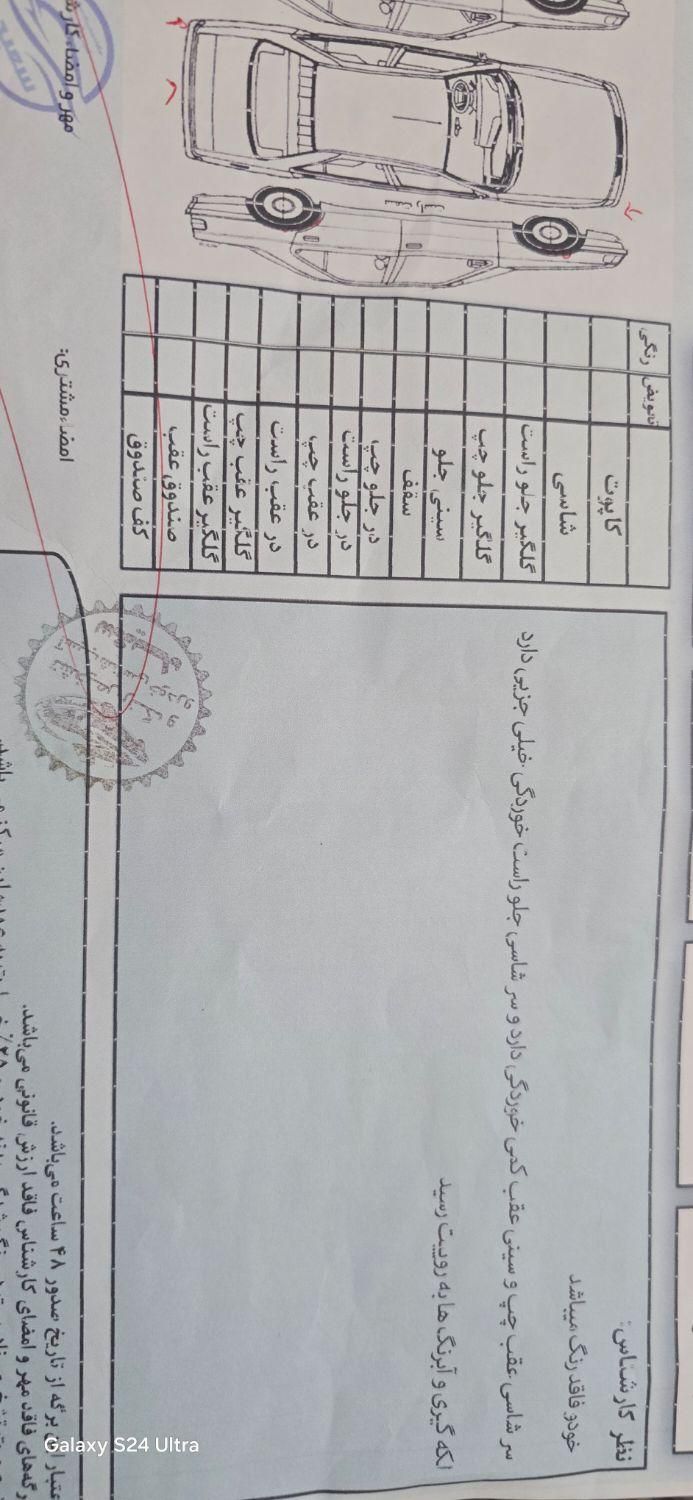 نظر کارشناس:
خودو فاقد رنگ میباشد
سر شاسی عقب چپ و سینی عقب کمی خوردگی دارد و سر شاسی جلو راست خوردگی خیلی جزیی دارد
لکه گیری و آبرنگ ها به روییت رسید
رنگی تعویض
کاپوت
شاسی
گلگیر جلو راست
گلگیر جلو چپ
سینی جلو
سقف
در جلو چپ
در جلو راست
در عقب چپ
در عقب راست
گلگیر عقب چپ
گلگیر عقب راست
صندوق عقب
کف صندوق
سمت راست
امضاء مشتری:
مهر و امضاء
از تاریخ صدور ۴۸ ساعت می‌باشد.
فاقد مهر و امضای کارشناس فاقد ارزش قانونی می‌باشد.
Galaxy S24 Ultra